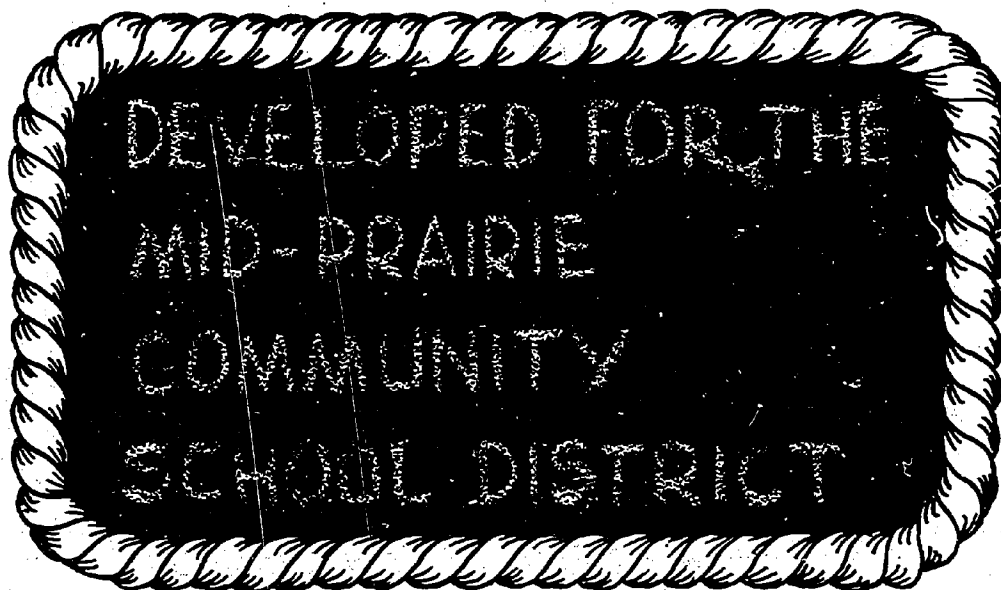 DEVELOPED FOR THE
MID-PRAIRIE
COMMUNITY
SCHOOL DISTRICT